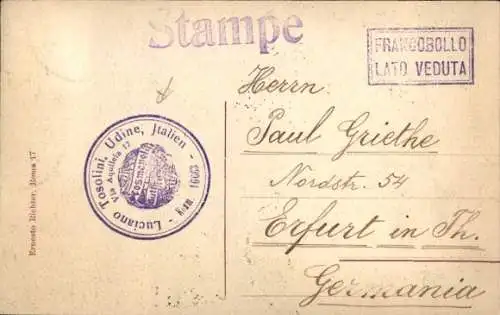 Stampe
FRANCOBOLLO
LATO VEDUTA
Herrn
Paul Griethe
Nordstr. 54
Erfurt in Th.
Germania
Luciano Tosolini, Udine, Jtalien
Via Aquileia 17
Ernesto Richter, Roma 17